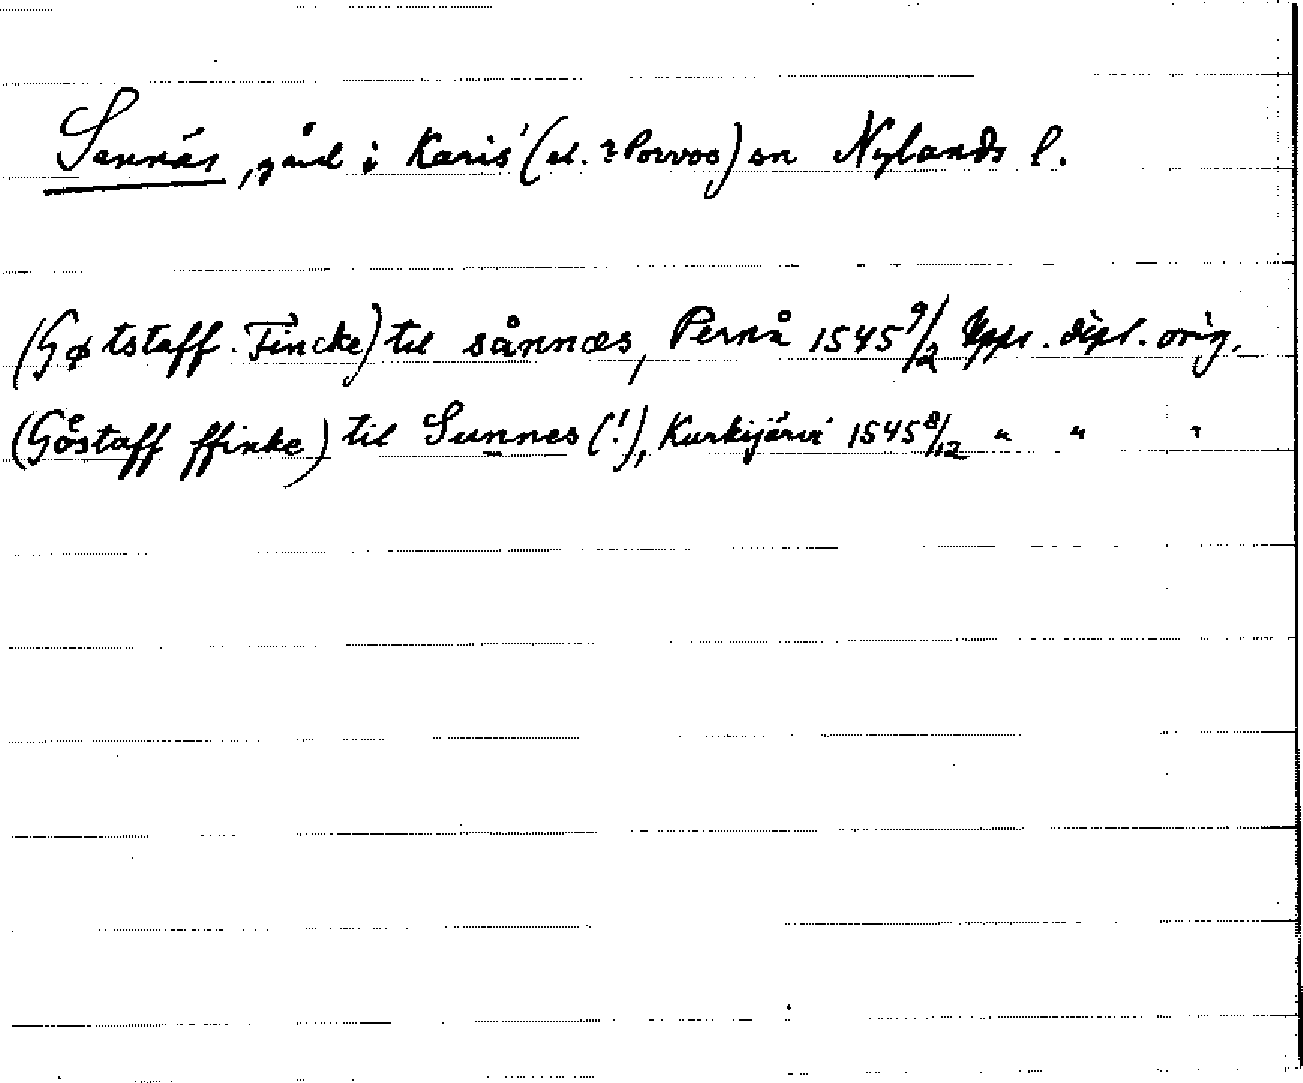 Sannäs, gård i Karis (el. ? Porvoo) sn Nylands l.
(Gøtstaff Fincke) til sånnæs, Pernå 1545 9/2 Upps. dipl. orig.
(Göstaff ffinke) til Sunnes (!), Kurkijärvi 1545 8/12 " " "